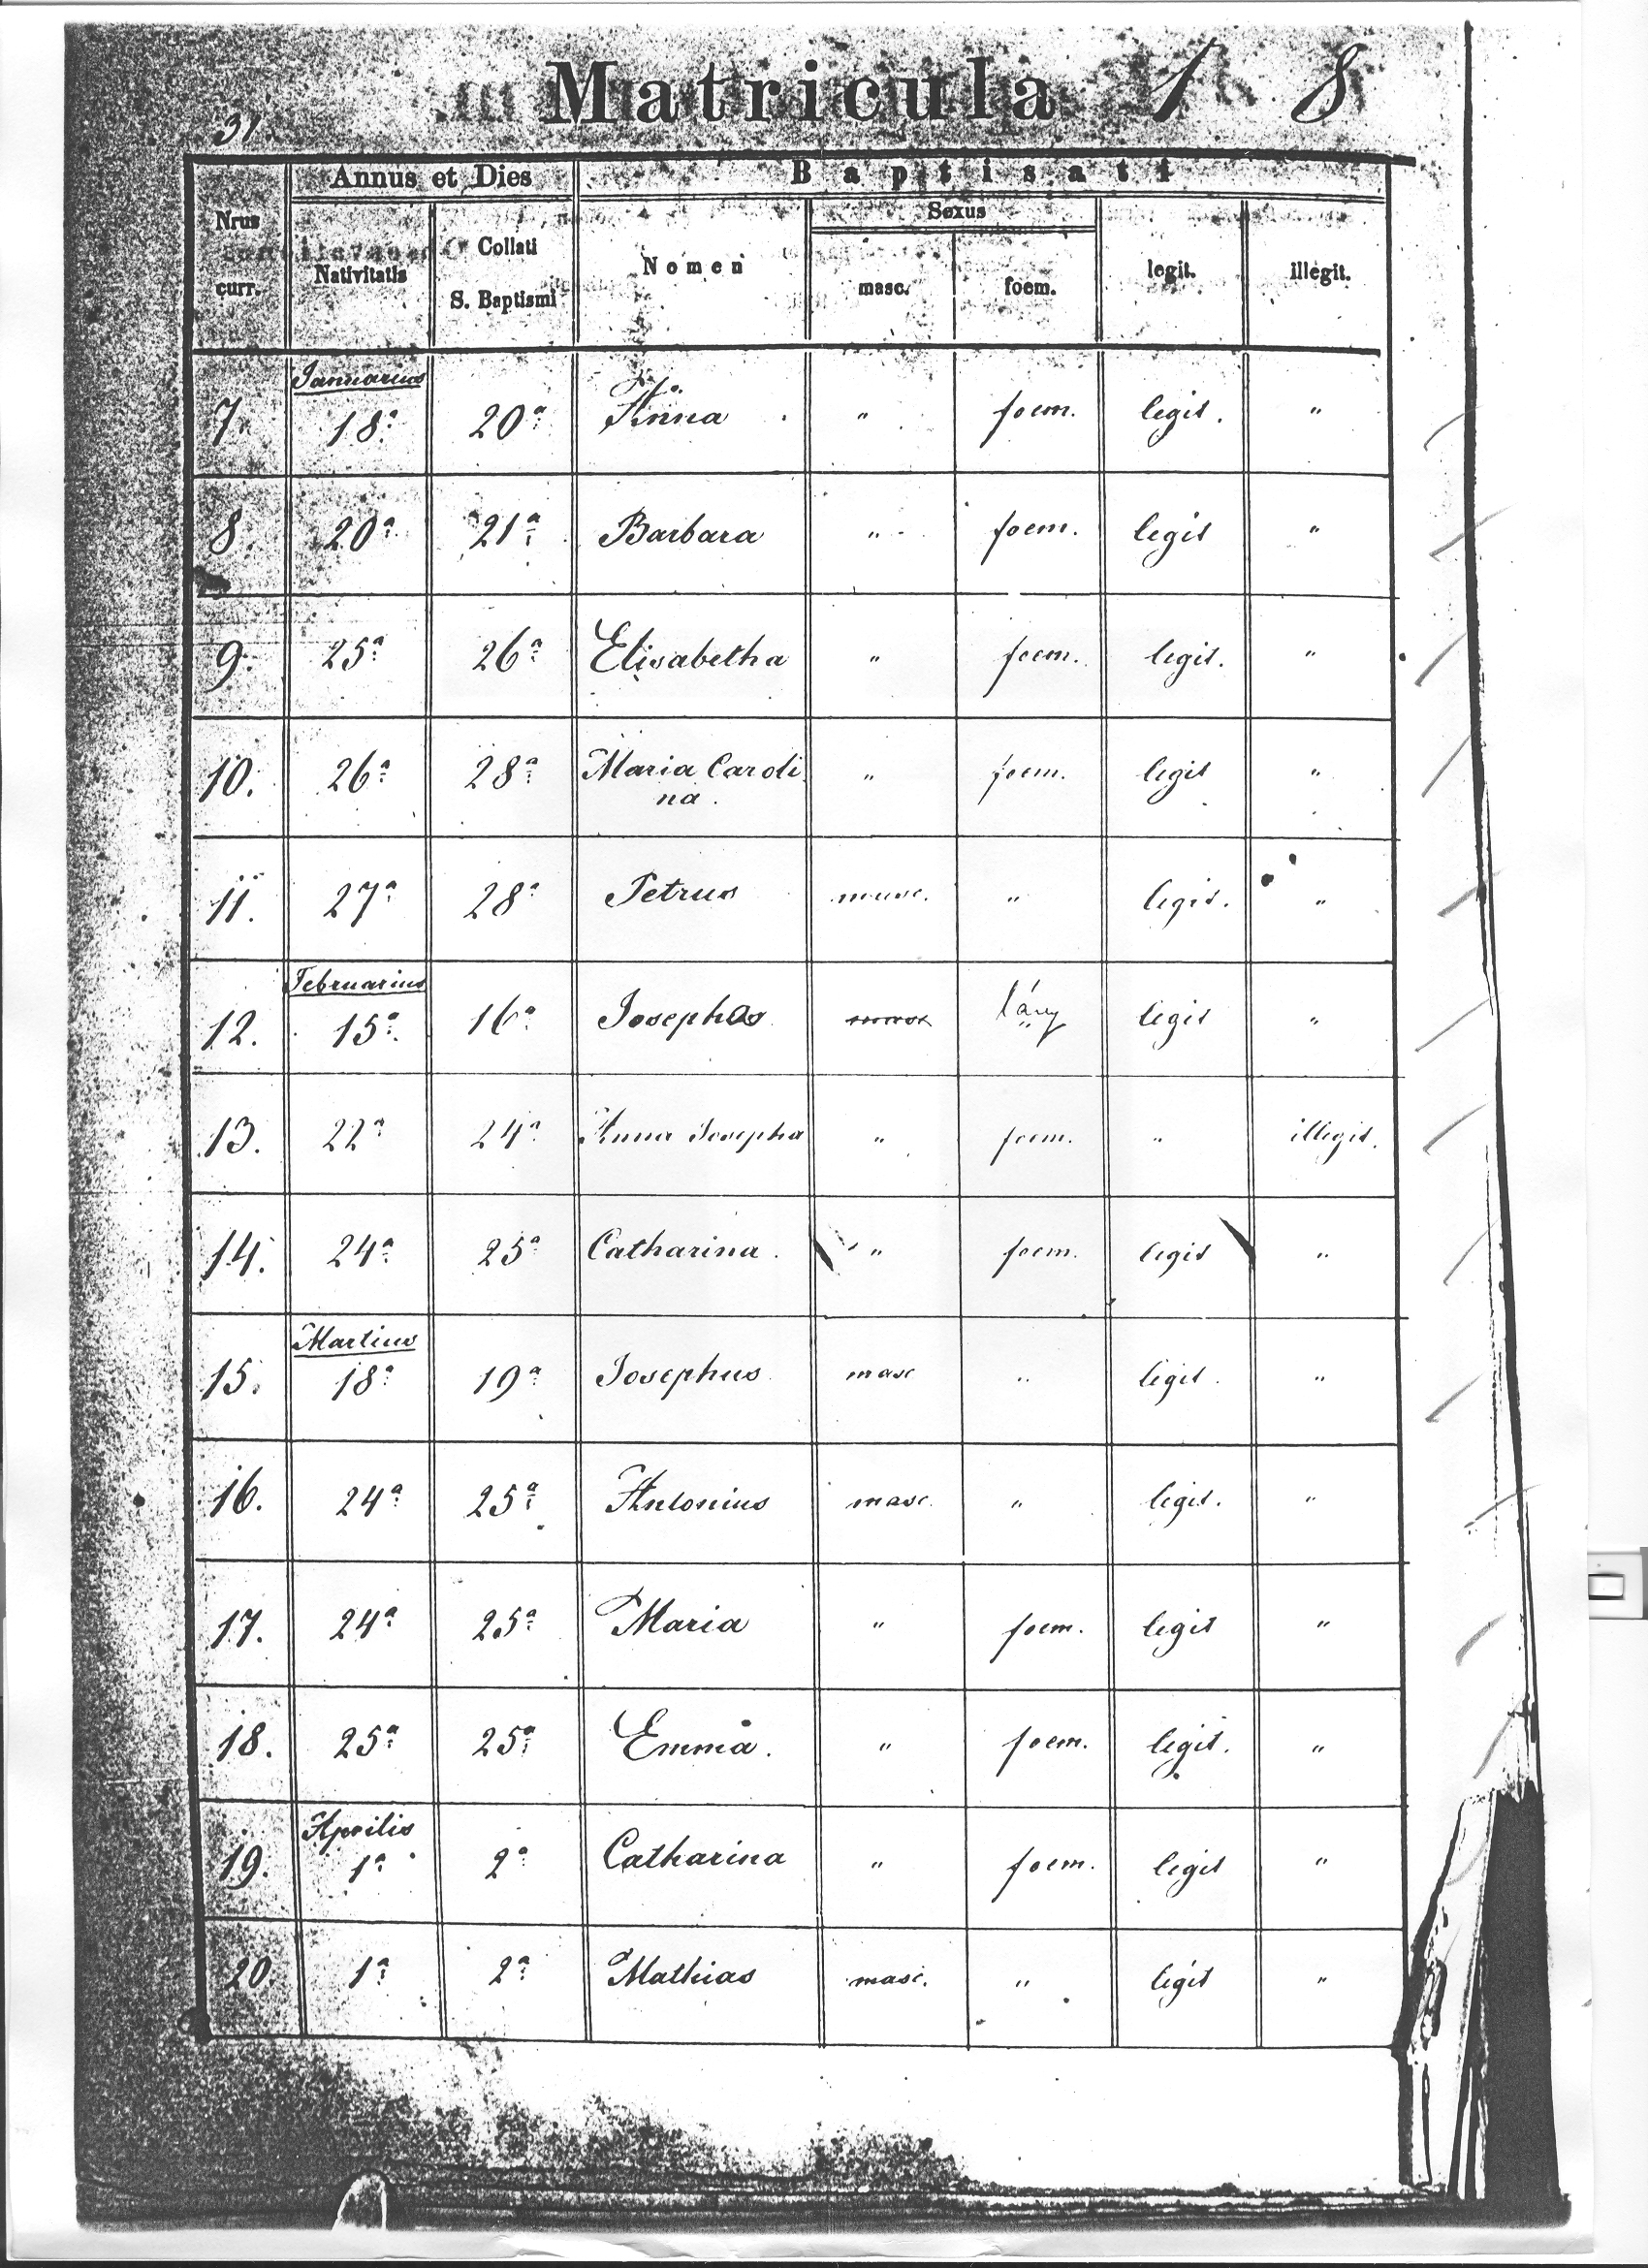 Matricula 1 8
31.
Annus et Dies Baptisati
Nrus curr. Nativitatis Collati S. Baptismi Nomen Sexus masc. foem. legit. illegit.
Januarius
7. 18ª 20ª Anna " foem. legit. "
8. 20ª 21ª Barbara " foem. legit "
9. 25ª 26ª Elisabetha " foem. legit. "
10. 26ª 28ª Maria Caroli " foem. legit "
na.
11. 27ª 28ª Petrus masc. " legit. "
Februarius
12. 15ª 16ª Josephas masc lány " legit "
13. 22ª 24ª Anna Josepha " foem. " illegit.
14. 24ª 25ª Catharina. " foem. legit "
Martius
15. 18ª 19ª Josephus masc " legit. "
16. 24ª 25ª Antonius masc. " legit. "
17. 24ª 25ª Maria " foem. legit "
18. 25ª 25ª Emma. " foem. legit. "
Aprilis
19. 1ª 2ª Catharina " foem. legit "
20. 1ª 2ª Mathias masc. " legit "